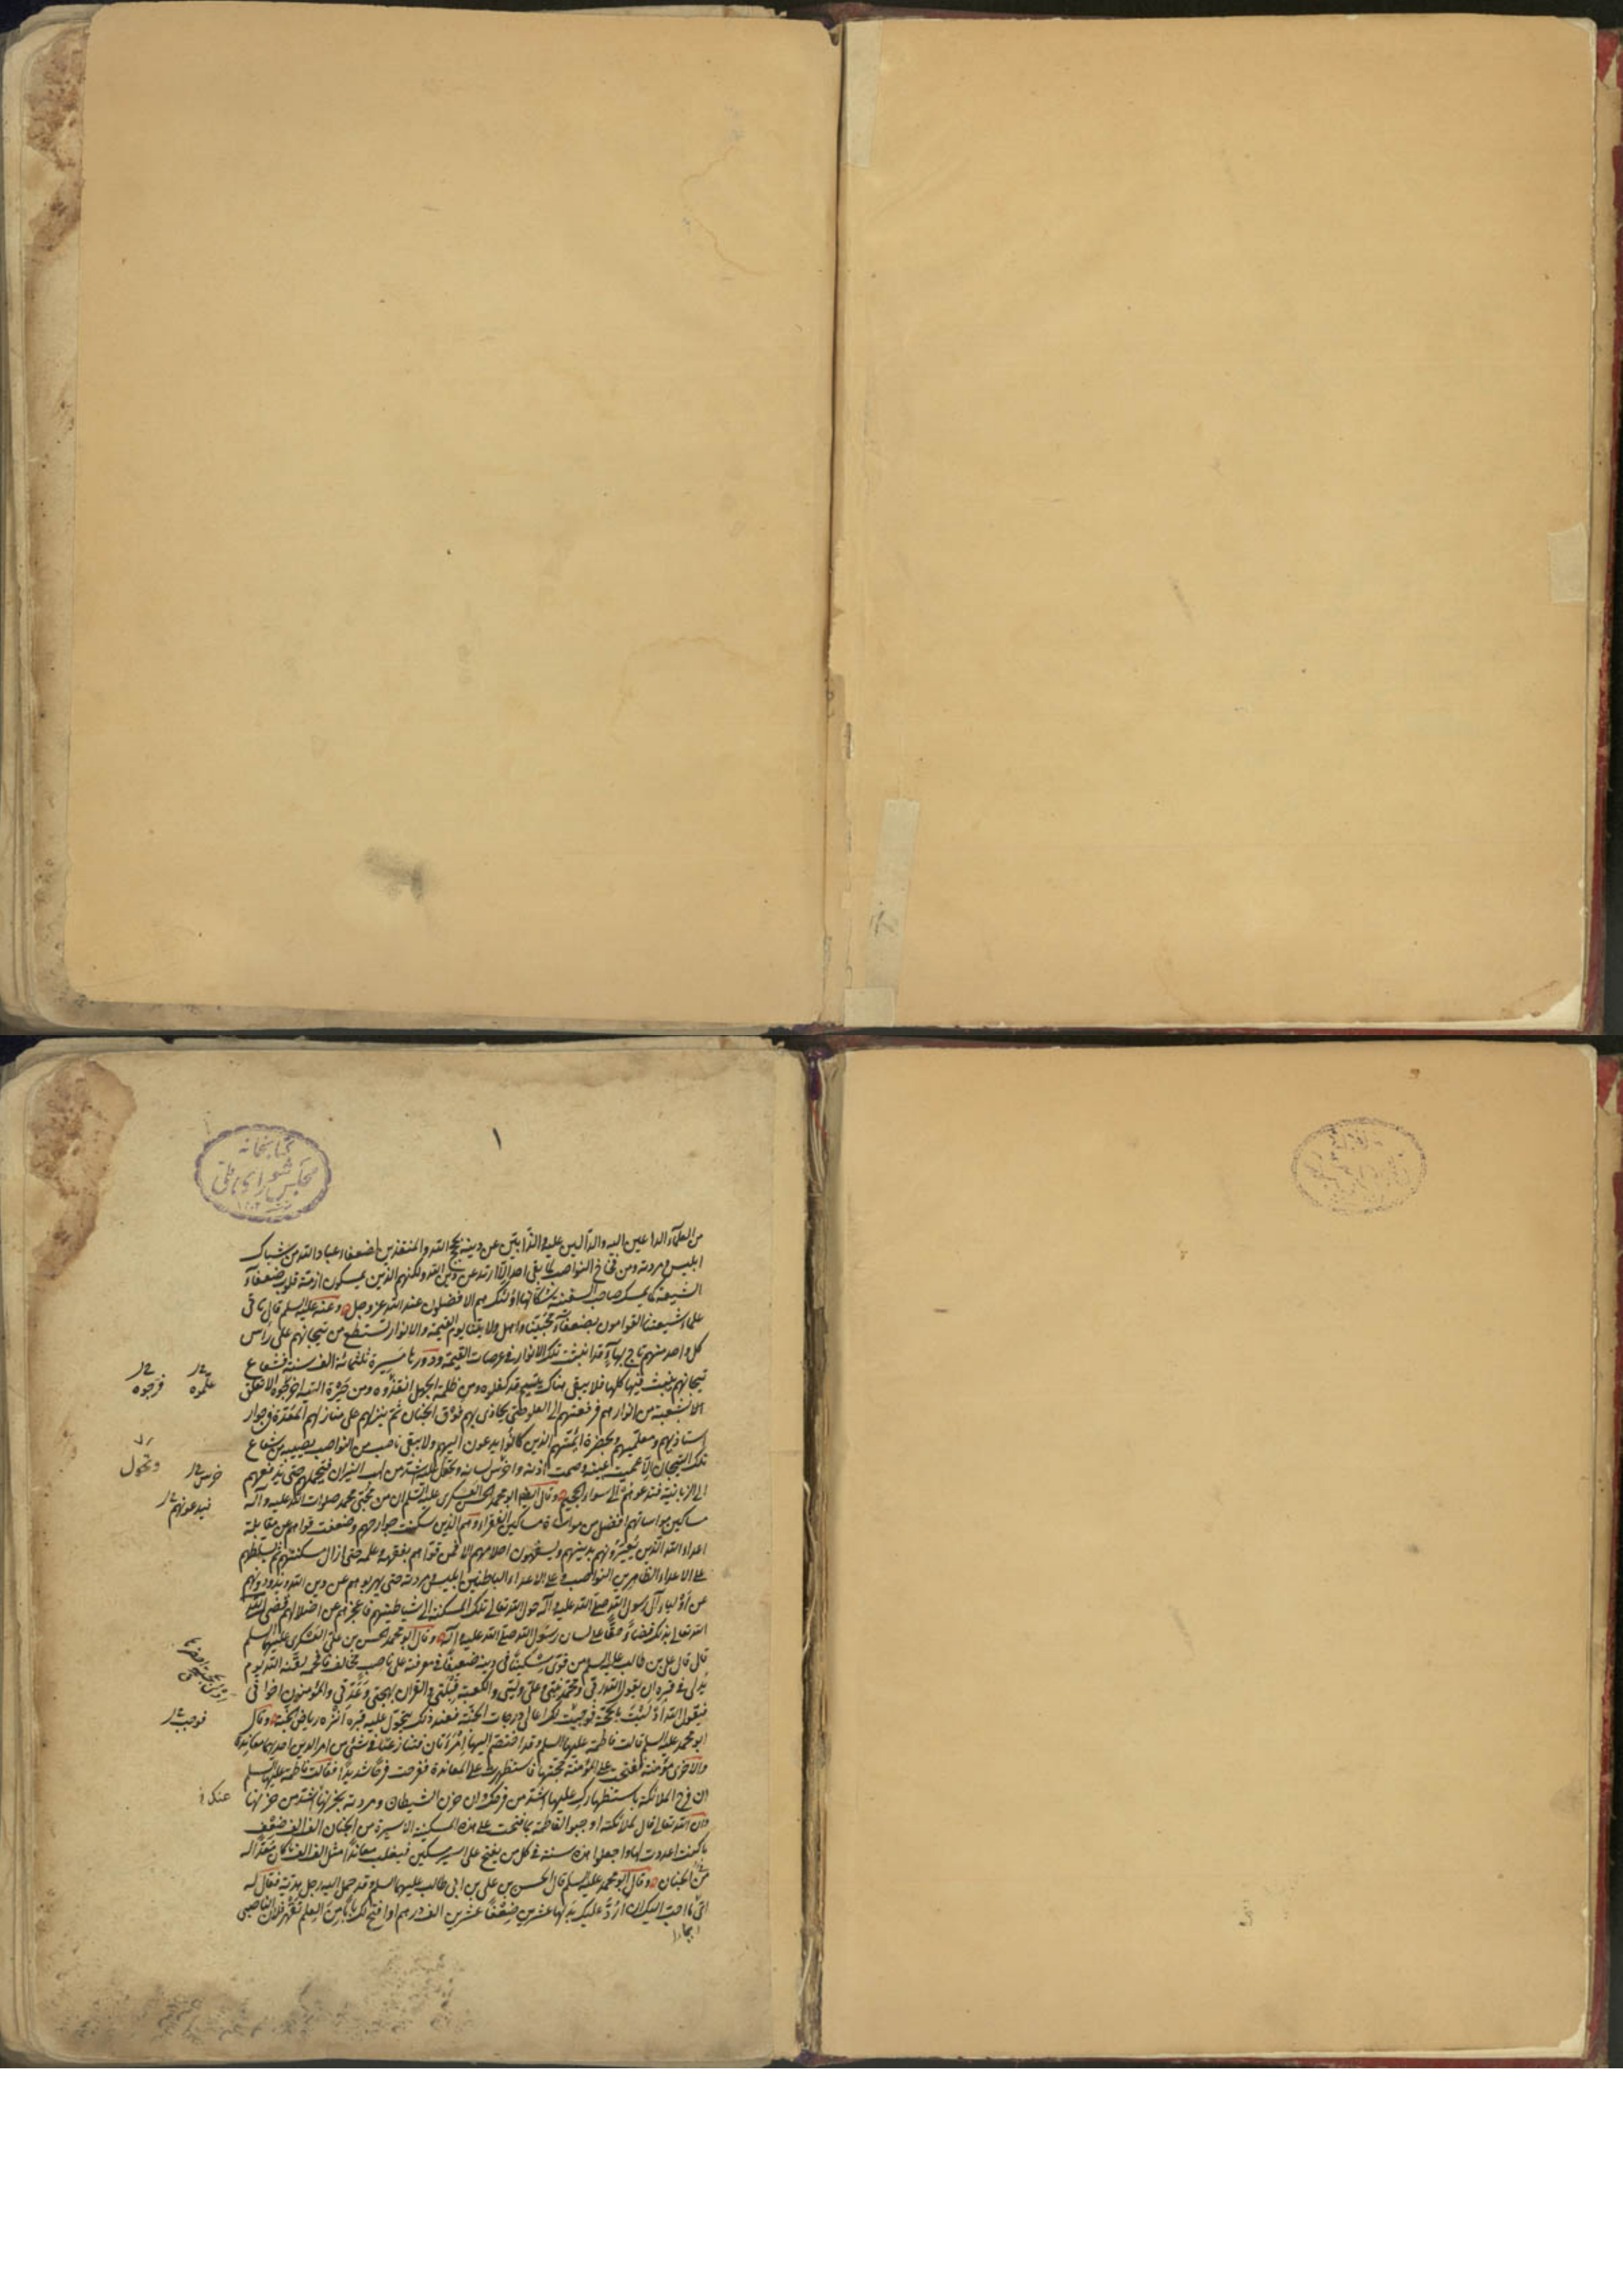 ١
كتابخانه
مجلس شوراى ملى
من العلمآء الداعين اليه والدالين عليه والذابين عن دينه بحجج الله والمنقذين لضعفاء عباد الله من شباك
ابليس ومردته ومن فخاخ النواصب لما بقى احد الا ارتد عن دين الله ولكنهم الذين يمسكون ازمة قلوب ضعفآء
الشيعة كما يمسك صاحب السفينة سكانها اولئك هم الافضلون عند الله عز وجل وعنه عليه السلم قال تاتى
علمآء شيعتنا القوامون بضعفآء محبينا واهل ولايتنا يوم القيمة والانوار تسطع من تيجانهم على راس
كل واحد منهم تاج بهآء قد انبثت تلك الانوار فى عرصات القيمة ودورها مسيرة ثلثمائة الف سنة فشعاع
تيجانهم ينبث فيها كلها فلا يبقى هناك يتيم قد كفلوه ومن ظلمة الجهل انقذوه ومن حيرة التيه اخرجوه الا تعلق
علموه
فرجوه
بشعبة من انوارهم فرفعتهم الى العلو حتى يحاذى بهم فوق الجنان ثم ينزلهم على منازلهم المعدة فى جوار
استاذيهم ومعلميهم وبحضرة ائمتهم الذين كانوا يدعون اليهم ولا يبقى ناصب من النواصب يصيبه من شعاع
تلك التيجان الا عميت عينه وصمت اذنه واخرس لسانه وتحول عليه اشد من لهب النيران فيتحملهم حتى يدفعهم
خرس
وتحول
الى الزبانية فتدعوهم الى سواء الجحيم وقال ايضا ابو محمد الحسن العسكرى عليه السلم ان من محبى محمد صلوات الله عليه وآله
فيدعونهم
مساكين مواساتهم افضل من مواساة مساكين الفقراء وهم الذين سكنت جوارحهم وضعفت قواهم عن مقابلة
اعداء الله الذين يعيرونهم بدينهم ويسفهون احلامهم الا فمن قواهم بفقهه وعلمه حتى ازال مسكنتهم ثم يسلطهم
على الاعداء الظاهرين النواصب وعلى الاعداء الباطنين ابليس ومردته حتى يهزموهم عن دين الله ويذودوهم
عن اولياء آل رسول الله صلى الله عليه وآله حول الله تعالى تلك المسكنة الى شياطينهم فاعجزهم عن اضلالهم قضى
الله تعالى بذلك قضاء حقا على لسان رسول الله صلى الله عليه وآله وقال ابو محمد الحسن بن على العسكرى عليهما السلم
قال قال على بن ابى طالب عليه السلم من قوى مسكينا فى دينه ضعيفا فى معرفته على ناصب مخالف فافحمه لقنه الله يوم
يدلى فى قبره ان يقول الله ربى ومحمد نبيى وعلى وليى والكعبة قبلتى والقرآن بهجتى وعدتى والمؤمنون اخوانى
فيقول الله ادليت بالحجة فوجبت لك اعالى درجات الجنة فعند ذلك يتحول عليه قبره انزه رياض الجنة وقال
فوجب
ابو محمد عليه السلم قالت فاطمة عليها السلم وقد اختصم اليها امرأتان فتنازعتا فى شىء من امر الدين احديهما معاندة
والاخرى مؤمنة ففتحت على المؤمنة حجتها فاستظهرت على المعاندة ففرحت فرحا شديدا فقالت فاطمة عليها السلم
ان فرح الملائكة باستظهارك عليها اشد من فرحك وان حزن الشيطان ومردته بحزنها اشد من حزنها
عنك
وان الله تعالى قال لملائكته اوجبوا لفاطمة بما فتحت على هذه المسكينة الاسيرة من الجنان الف الف ضعف
ما كنت اعددت لها واجعلوا هذه سنة فى كل من يفتح على اسير مسكين فيغلب معاندا مثل الف الف ما كان معدا له
من الجنان وقال ابو محمد عليه السلم قال الحسن بن على بن ابى طالب عليهما السلم وقد حمل اليه رجل هدية فقال له
ايما احب اليك ان ارد عليك بدلها عشرين ضعفا عشرين الف درهم او افتح لك بابا من العلم تقهر فلان الناصبى